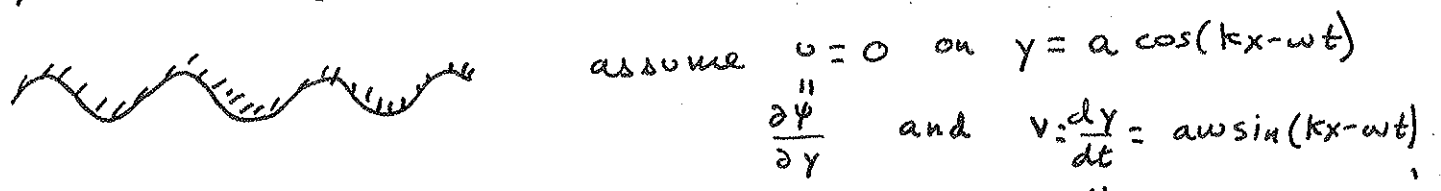 assume u = 0 on y = a cos(kx-ωt)
"
∂ψ/∂y and v = dy/dt = aω sin(kx-ωt).